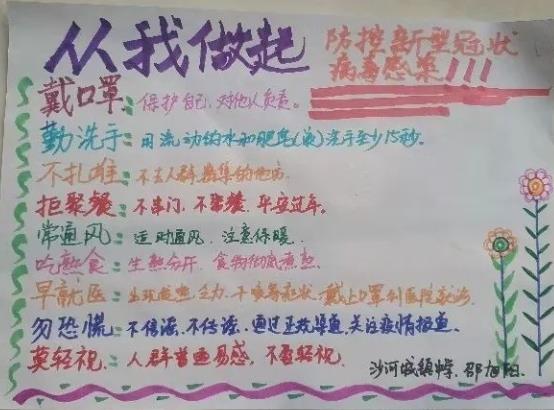 从我做起
防控新型冠状
病毒感染!!!
戴口罩:保护自己、对他人负责。
勤洗手:用流动的水和肥皂(液)洗手至少15秒。
不扎堆:不去人群密集的地方
拒聚餐:不串门、不聚餐、平安过年。
常通风:适时通风、注意保暖.
吃熟食:生熟分开、食物彻底煮熟.
早就医:出现发热、乏力、干咳等症状、戴上口罩到医院就诊.
勿恐慌:不信谣、不传谣、通过正规渠道,关注疫情报道.
莫轻视:人群普遍易感、不要轻视.
沙河城镇 邵旭阳.